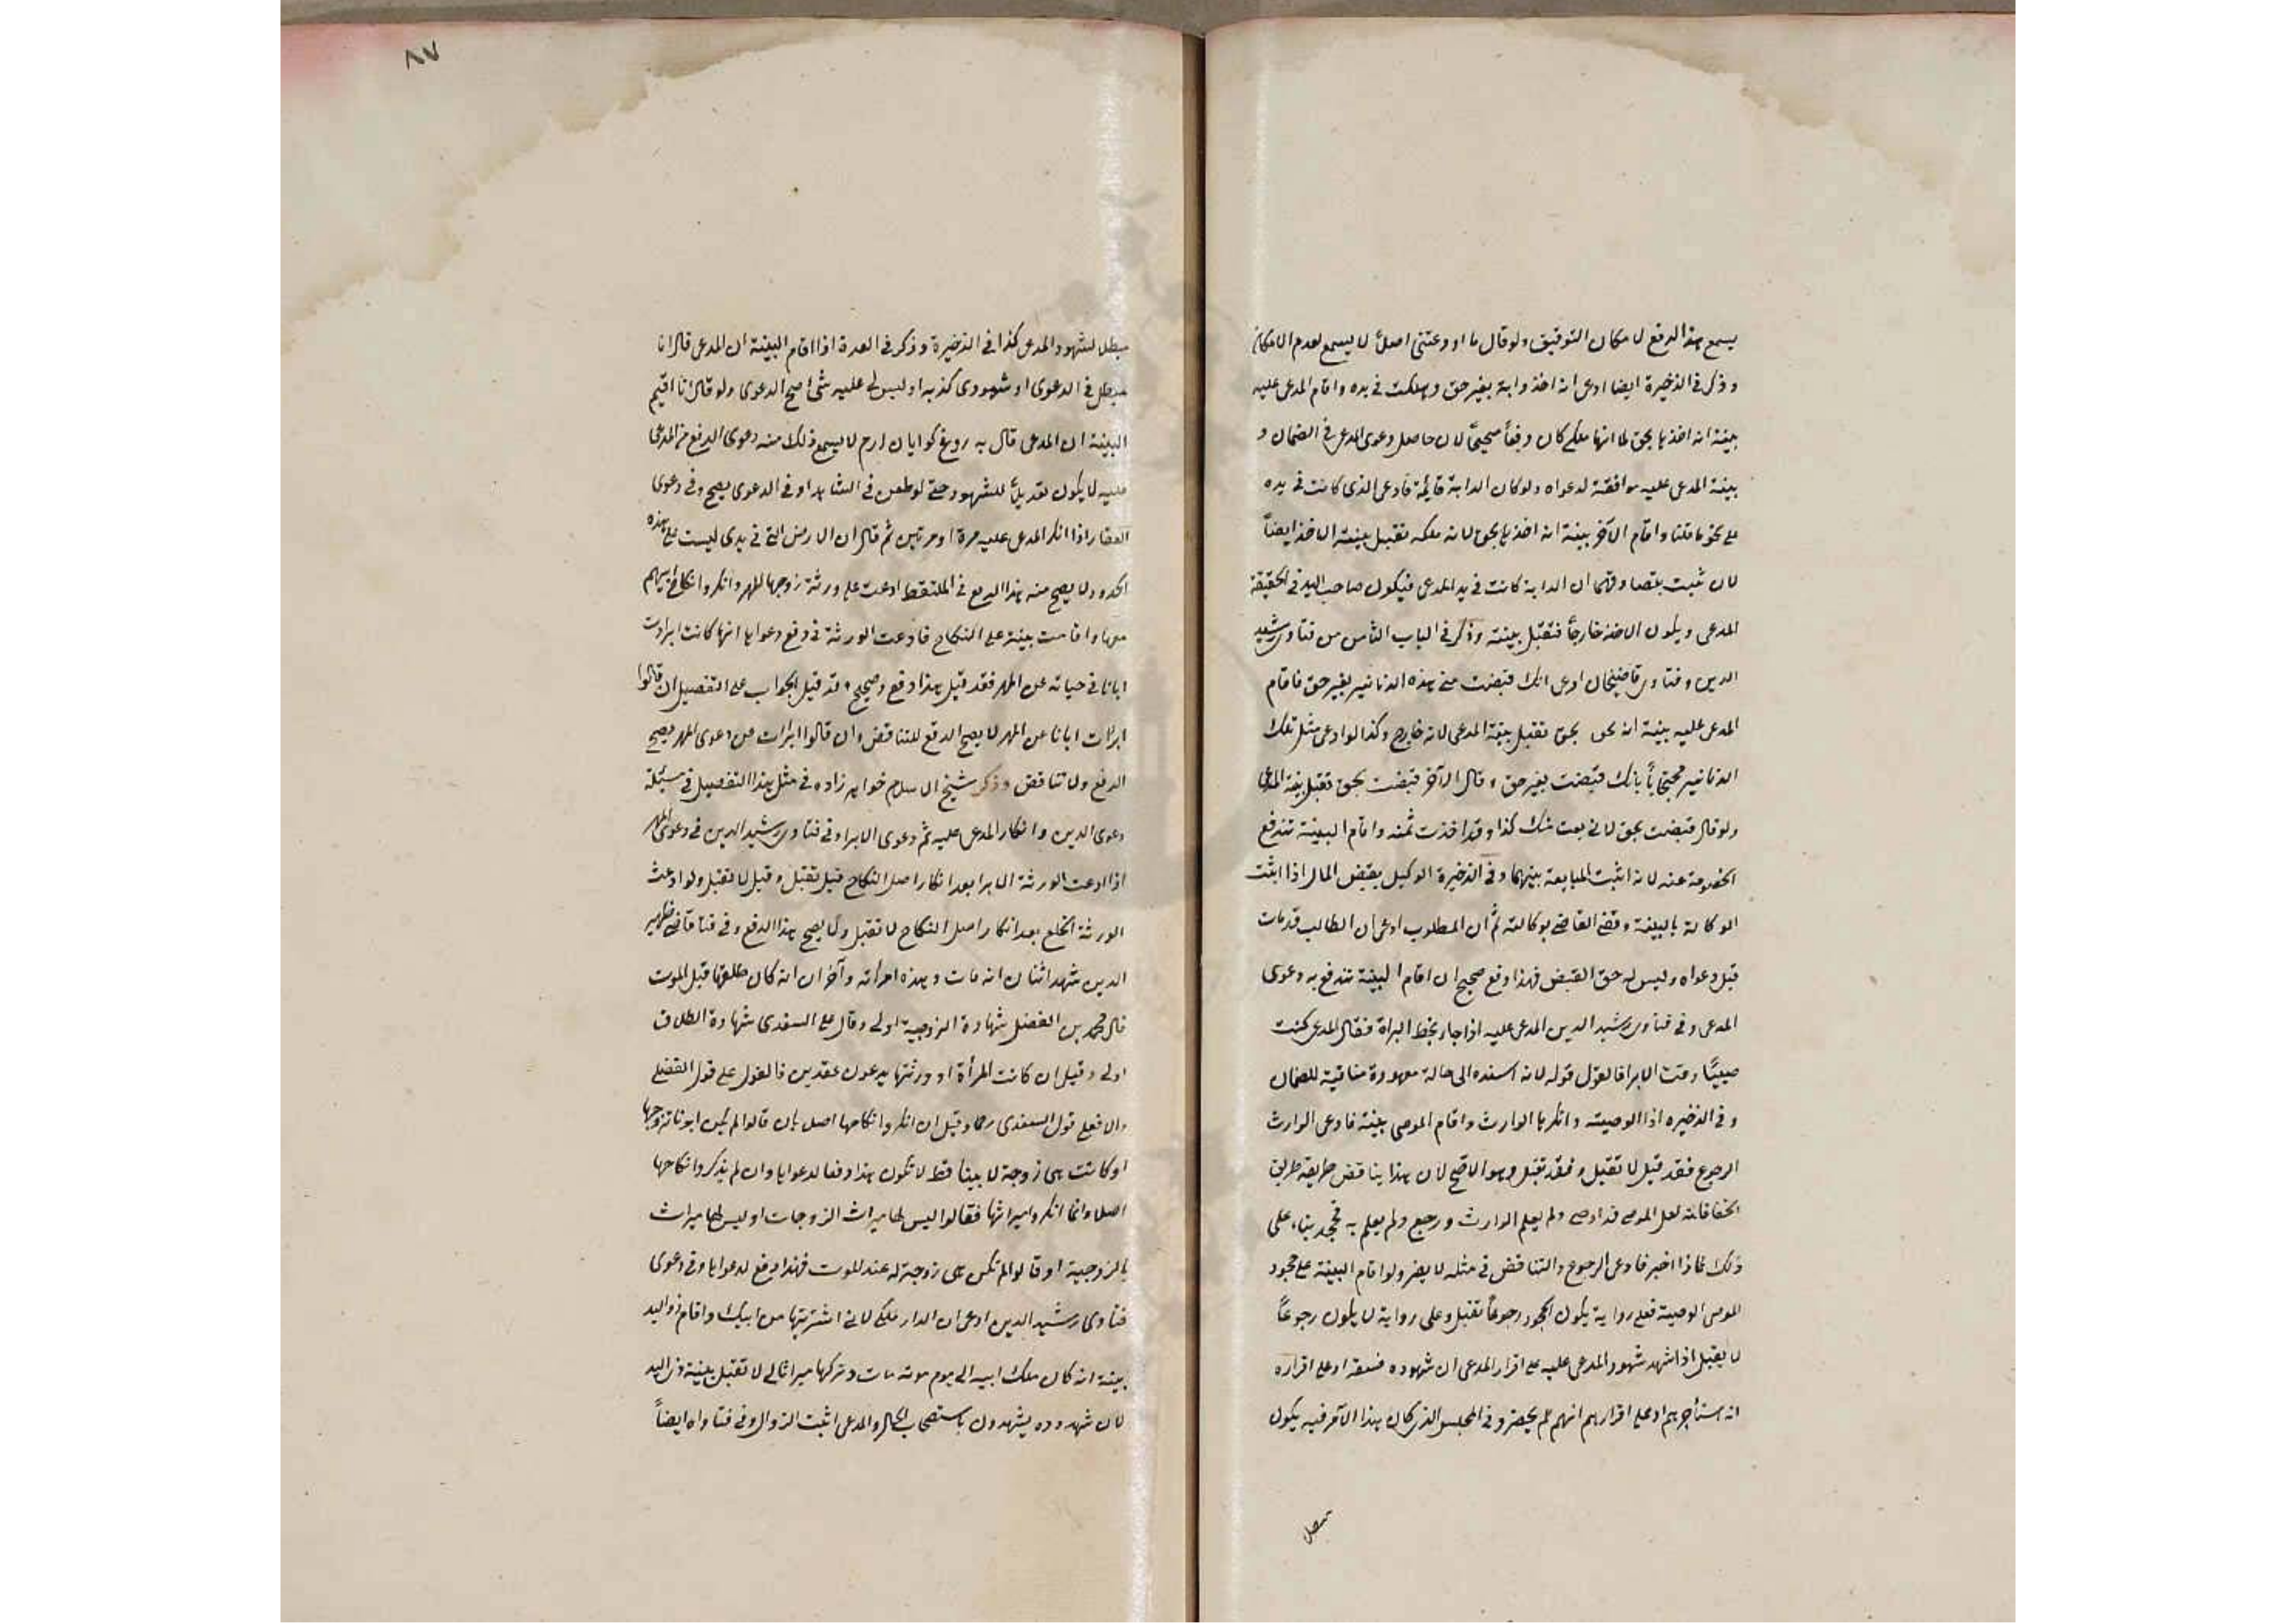 يسمع هذا الدفع لامكان التوفيق ولو قال ما اودعتنى اصلاً لا يسمع لعدم الامكان
وذكر فى الذخيرة ايضا ادعى انه اخذ دابة بغير حق وهلكت فى يده واقام المدعى عليه
بينة انه اخذها بحق لما انها ملكى كان دفعاً صحيحاً لان حاصل دعوى المدعى فى الضمان و
بينة المدعى عليه موافقة لدعواه ولو كان الدابة قايمة فادعى الذى كانت فى يده
على نحو ما قلنا واقام الآخر بينة انه اخذها بحق لانه ملكه تقبل بينة الاخذ ايضاً
لان ثبت بتصادقهما ان الدابة كانت فى يد المدعى فيكون صاحب اليد فى الحقيقة
المدعى ويكون الاخذ خارجاً فتقبل بينته وذكر فى الباب الثامن من فتاوى رشيد
الدين وفتاوى قاضيخان ادعى انك قبضت منى هذه الدنانير بغير حق فاقام
المدعى عليه بينة انه بحق تقبل بينة المدعى لانه خارج وكذا لو ادعى مثل تلك
الدنانير محتجاً بانك قبضت بغير حق وقال الآخر قبضت بحق تقبل بينة المدعى
ولو قال قبضت بحق لانى بعت منك كذا وقد اخذت ثمنه واقام البينة تندفع
الخصومة عنه لانه اثبت المبايعة بينهما وفى الذخيرة الوكيل بقبض المال اذا اثبت
الوكالة بالبينة وقضى القاضى بوكالته ثم ان المطلوب ادعى ان الطالب قد مات
قبل دعواه وليس له حق القبض فهذا دفع صحيح ان اقام البينة تندفع به دعوى
المدعى وفى فتاوى رشيد الدين المدعى عليه اذا جاء بخط البراة فقال المدعى كنت
صبيًا وقت الابرا فالقول قوله لانه اسنده الى حالة معهودة منافية للضمان
وفى الذخيره اذا الوصيته وانكرها الوارث واقام الموصى بينة فادعى الوارث
الرجوع فقد قيل لا تقبل وفقد تقبل وهو الاصح لان هذا يناقض طريقه طريق
الخفا فانه لعل الموصى قد اوصى ولم يعلم الوارث ورجع ولم يعلم به فجحد بناء على
ذلك فاذا اخبر فادعى الرجوع والتناقض فى مثله لا يضر ولو اقام البينة على جحود
الموصى الوصية فعلى رواية يكون الجحود رجوعاً تقبل وعلى رواية لا يكون رجوعاً
لا يقبل اذا شهد شهود المدعى عليه على اقرار المدعى ان شهوده فسقة او على اقراره
انه استأجرهم او على اقرارهم انهم لم يحضروا فى المجلس الذى كان هذا الامر فيه يكون
مبطل
٨٧
مبطل لشهود المدعى كذا فى الذخيرة وذكر فى العدة اذا اقام البينة ان المدعى قال انا
مبطل فى الدعوى او شهودى كذبه او ليس لى عليه شئ صح الدعوى ولو قال انا اقيم
البينة ان المدعى قال به روغ كواهان ارم لا يسمع ذلك منه دعوى الدفع من المدعى
عليه لا يكون تعديلاً للشهود حتى لو طعن فى الشاهد او فى الدعوى يصح وفى دعوى
العقار اذا انكر المدعى عليه مرة او مرتين ثم قال ان الارض التى فى يدى ليست على هذه
الحدود لا يصح منه هذا الدفع فى الملتقط ادعت على ورثة زوجها المهر وانكروا نكاح ابيهم
معها واقامت بينة على النكاح فادعت الورثة فى دفع دعواها انها كانت ابرات
ابانا فى حياته عن المهر فقد قيل هذا دفع وصحيح وقد قيل الجواب على التفصيل ان قالوا
ابرات ابانا عن المهر لا يصح الدفع للتناقض وان قالوا ابرات من دعوى المهر يصح
الدفع ولا تناقض وذكر شيخ الاسلام خواهر زاده فى مثل هذا التفصيل فى مسئلة
دعوى الدين وانكار المدعى عليه ثم دعوى الابرا وفى فتاوى رشيد الدين فى دعوى المهر
اذا ادعت الورثة الابرا بعد انكار اصل النكاح قيل تقبل وقيل لا تقبل ولو ادعت
الورثة الخلع بعد انكار اصل النكاح لا تقبل ولا يصح هذا الدفع وفى فتا قاضى ظهير
الدين شهد اثنان انه مات وهذه امرأته وآخران انه كان طلقها قبل الموت
قال محمد بن الفضل شهادة الزوجية اولى وقال على السغدى شهادة الطلاق
اولى وقيل ان كانت المرأة او ورثتها يدعون عقدين فالقول على قول الفضلى
والا فعلى قول السغدى رحما وقيل ان انكروا نكاحها اصل بان قالوا لم يكن ابونا تزوجها
او كانت هى زوجة لابينا قط لا تكون هذا دفعا لدعواها وان لم ينكروا نكاحها
اصلا وانما انكروا ميراثها فقالوا ليس لها ميراث الزوجات او ليس لها ميراث
بالزوجية او قالوا لم تكن هى زوجة له عند الموت فهذا دفع لدعواها وفى دعوى
فتاوى رشيد الدين ادعى ان الدار ملكى لانى اشتريتها من ابيك واقام ذو اليد
بينة انه كان ملك ابيه الى يوم موته مات وتركها ميراثا لى لا تقبل بينة ذى اليد
لان شهوده يشهدون باستصحاب الحال والمدعى اثبت الزوال وفى فتاواه ايضاً